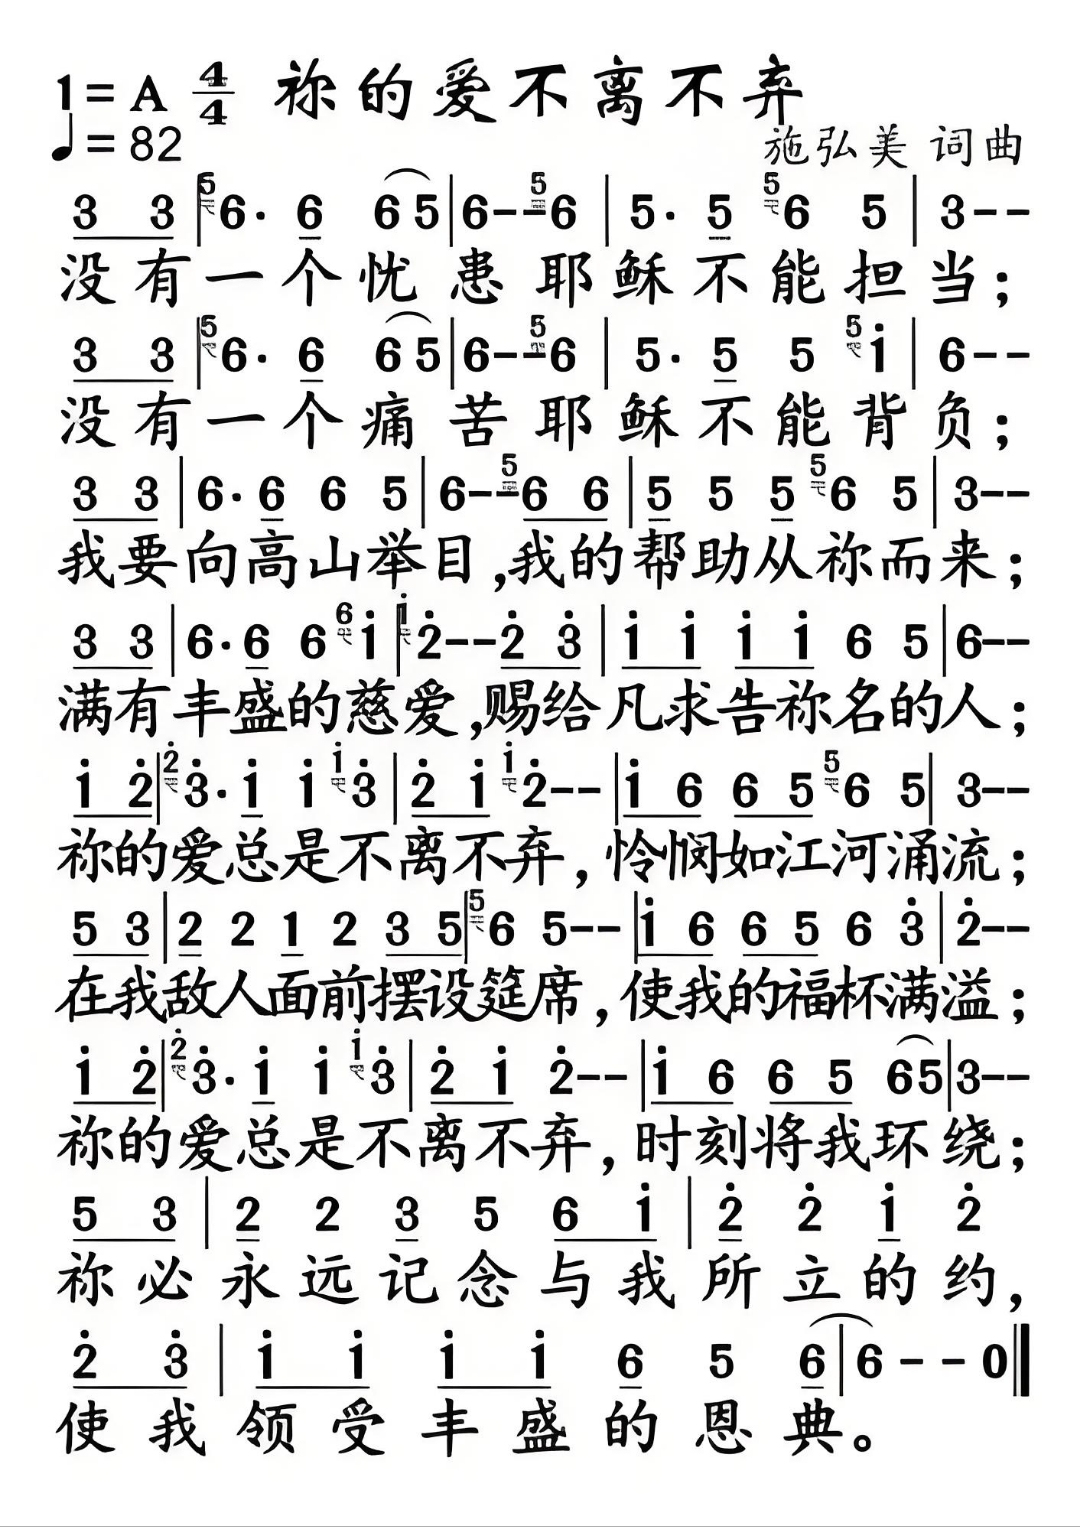 1=A 4/4 祢的爱不离不弃
♩=82
施弘美 词曲
3 3 | 5 6· 6 6 5 | 6-- 5 6 | 5· 5 5 6 5 | 3--
没有一个忧患耶稣不能担当；
3 3 | 5 6· 6 6 5 | 6-- 5 6 | 5· 5 5 5 i | 6--
没有一个痛苦耶稣不能背负；
3 3 | 6· 6 6 5 | 6-- 5 6 6 | 5 5 5 5 6 5 | 3--
我要向高山举目,我的帮助从祢而来；
3 3 | 6· 6 6 6 i | i 2̇--2̇ 3̇ | i i i i 6 5 | 6--
满有丰盛的慈爱,赐给凡求告祢名的人；
i 2̇ | 2̇ 3̇· i i i 3̇ | 2̇ i i 2̇-- | i 6 6 5 5 6 5 | 3--
祢的爱总是不离不弃，怜悯如江河涌流；
5 3 | 2 2 1 2 3 5 | 5 6 5-- | i 6 6 5 6 3̇ | 2̇--
在我敌人面前摆设筵席，使我的福杯满溢；
i 2̇ | 2̇ 3̇· i i i 3̇ | 2̇ i 2̇-- | i 6 6 5 6 5 | 3--
祢的爱总是不离不弃，时刻将我环绕；
5 3 | 2 2 3 5 6 i | 2̇ 2̇ i 2̇
祢必永远记念与我所立的约，
2̇ 3̇ | i i i i 6 5 6 | 6 - - 0 ‖
使我领受丰盛的恩典。